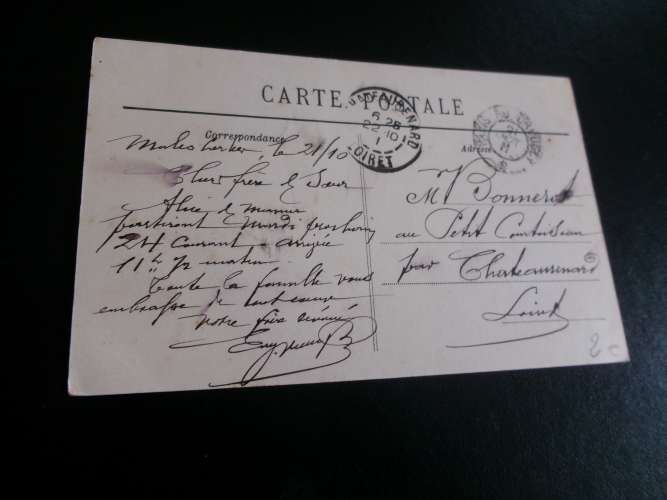 CARTE POSTALE
Correspondance
Adresse
CHATEAURENARD
6 25
22 10
LOIRET
Malesherbes, le 21/10
Chers frère & Sœur
Alice & maman
partiront Mardi prochain
24 Courant, arrivée
11h 1/2 matin
Toute la famille vous
embrasse de tout cœur
Votre frère dévoué
Eugène B
Mr Bonnerot
au Petit Courtoiseau
par Chateaurenard
Loiret
2 €